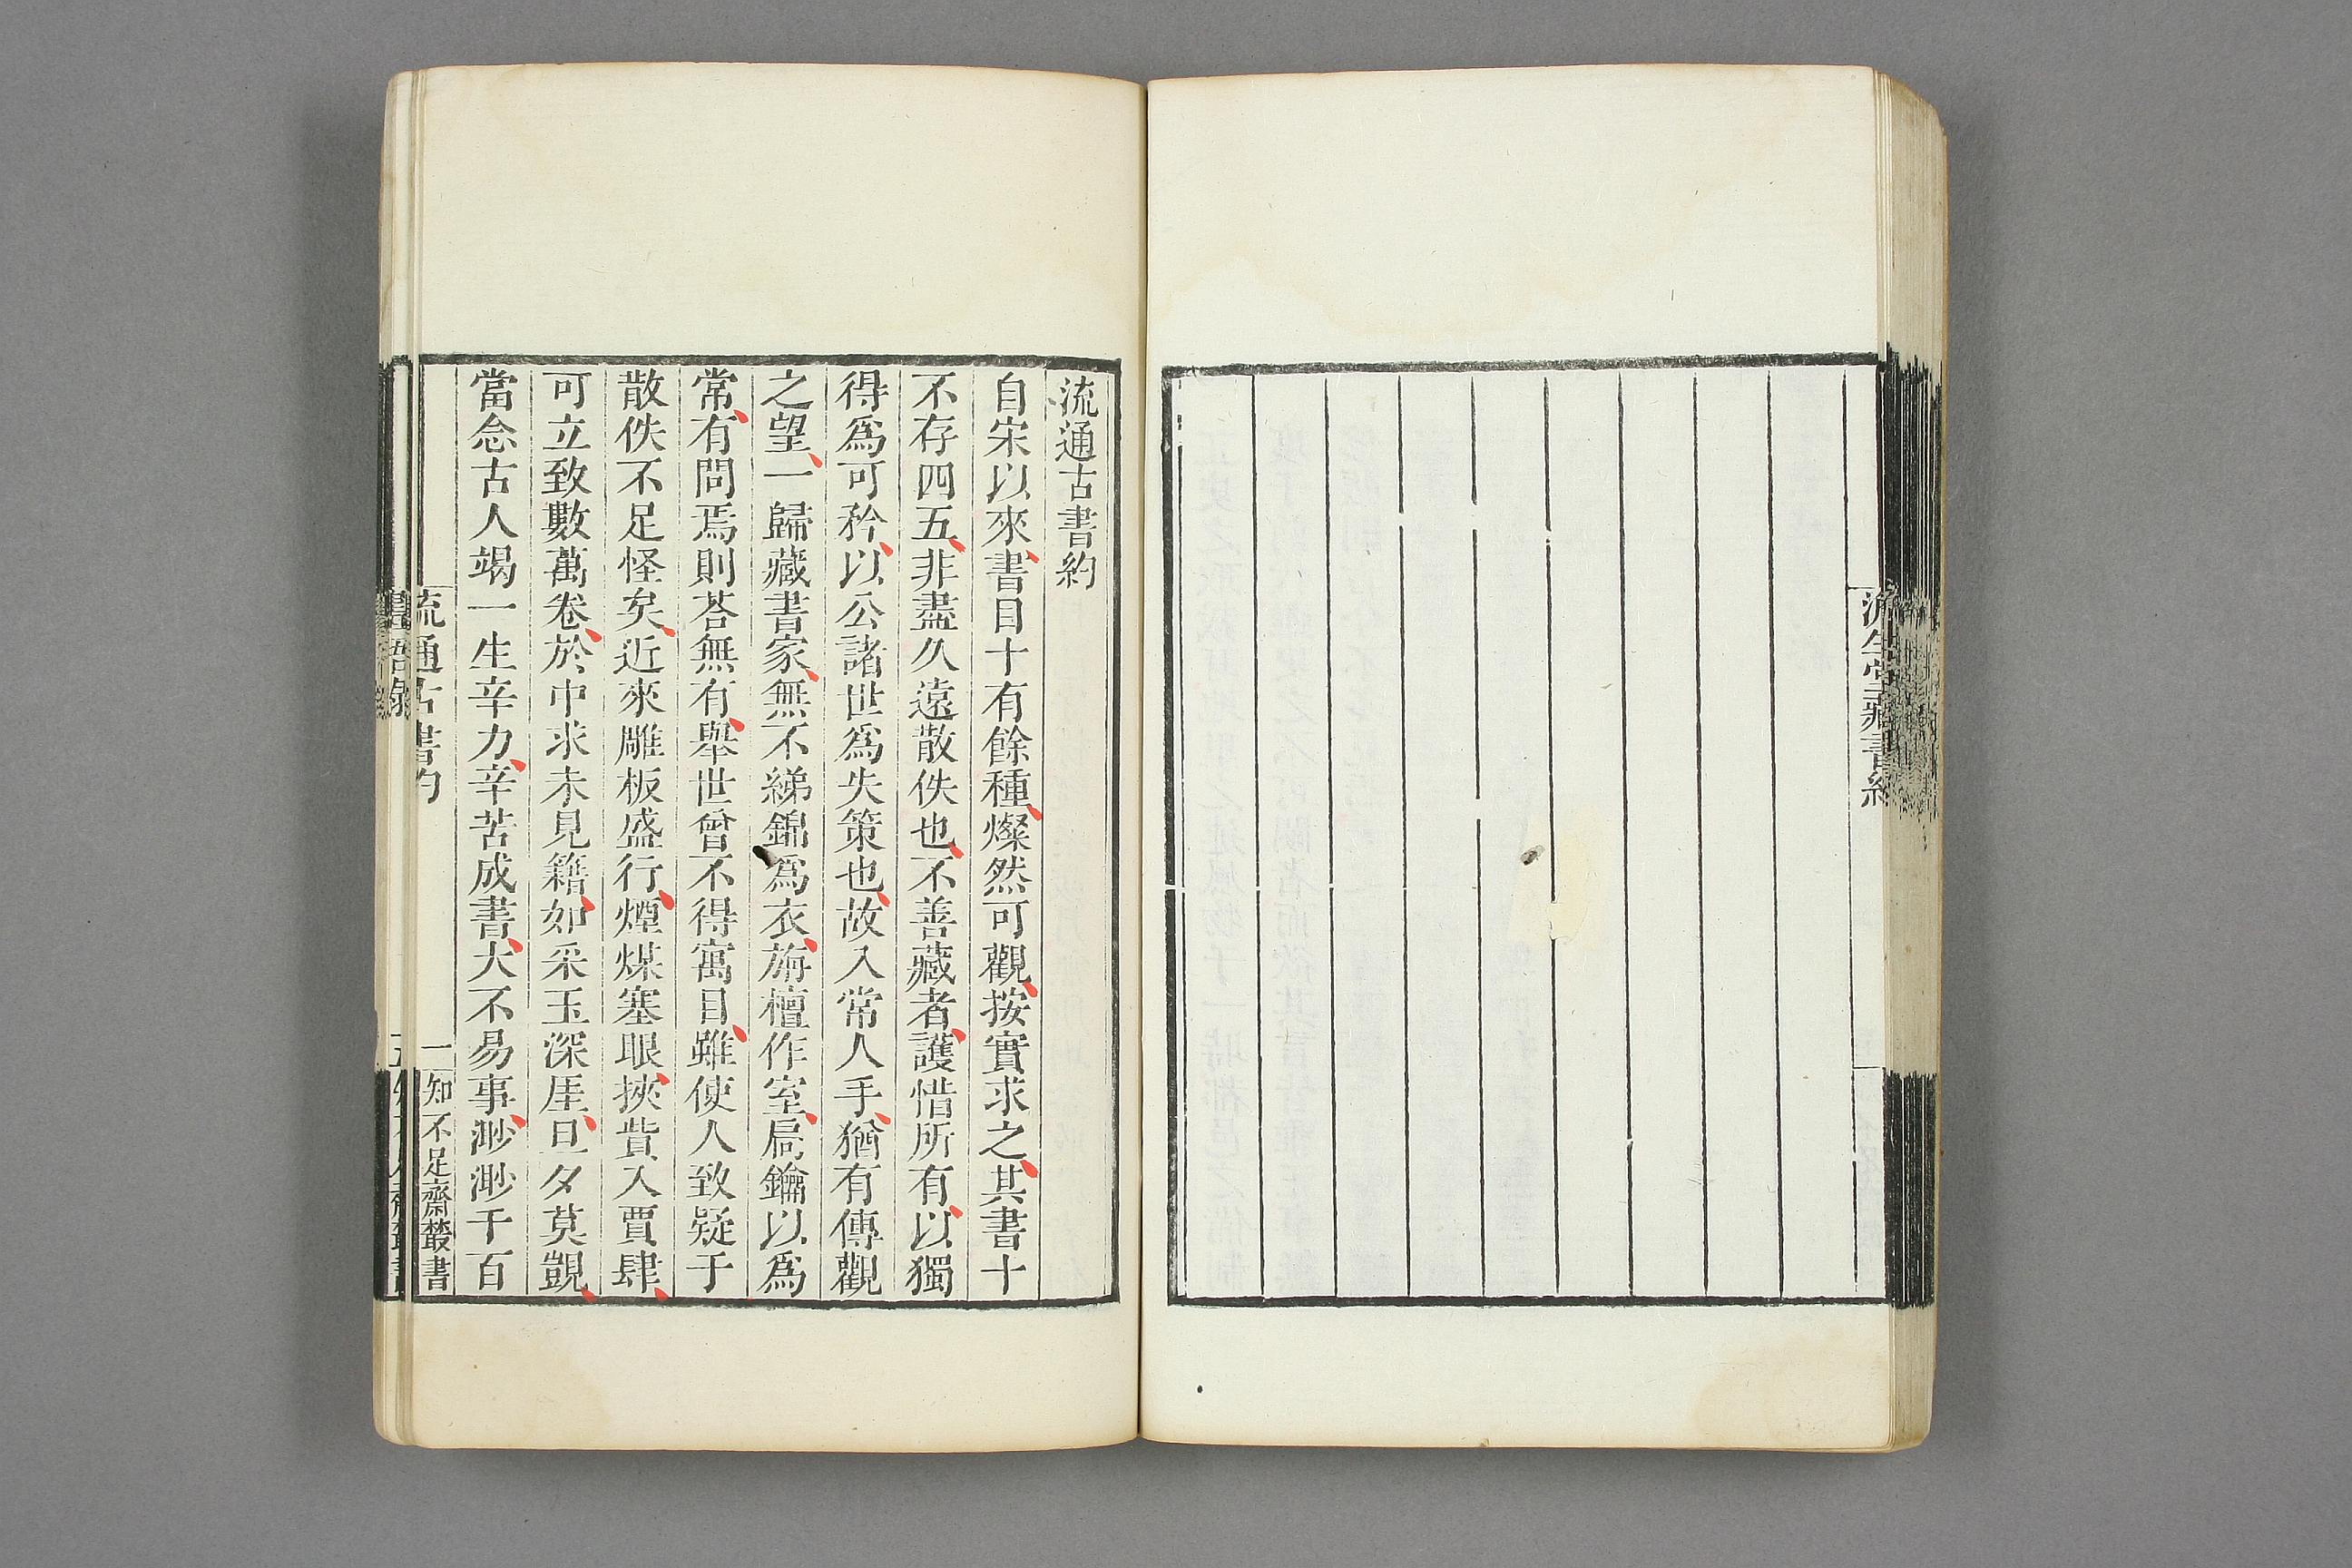 澹生堂藏書約
流通古書約
自宋以來書目十有餘種燦然可觀按實求之其書十
不存四五非盡久遠散佚也不善藏者護惜所有以獨
得爲可矜以公諸世爲失策也故入常人手猶有傳觀
之望一歸藏書家無不綈錦爲衣旃檀作室扃鑰以爲
常有問焉則荅無有舉世曾不得寓目雖使人致疑于
散佚不足怪矣近來雕板盛行煙煤塞眼挾貲入賈肆
可立致數萬卷於中求未見籍如采玉深厓旦夕莫覬
當念古人竭一生辛力辛苦成書大不易事渺渺千百
流通古書約
一
知不足齋叢書